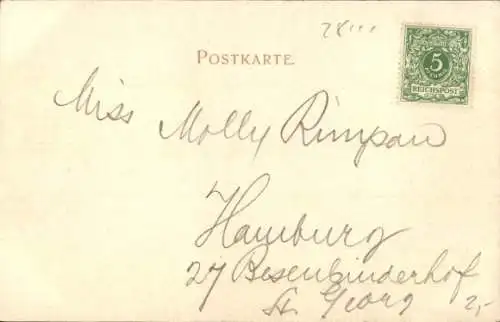 POSTKARTE.
5
REICHSPOST
Miss Molly Rimpau
Hamburg
27 Besenbinderhof
St. Georg
2,-